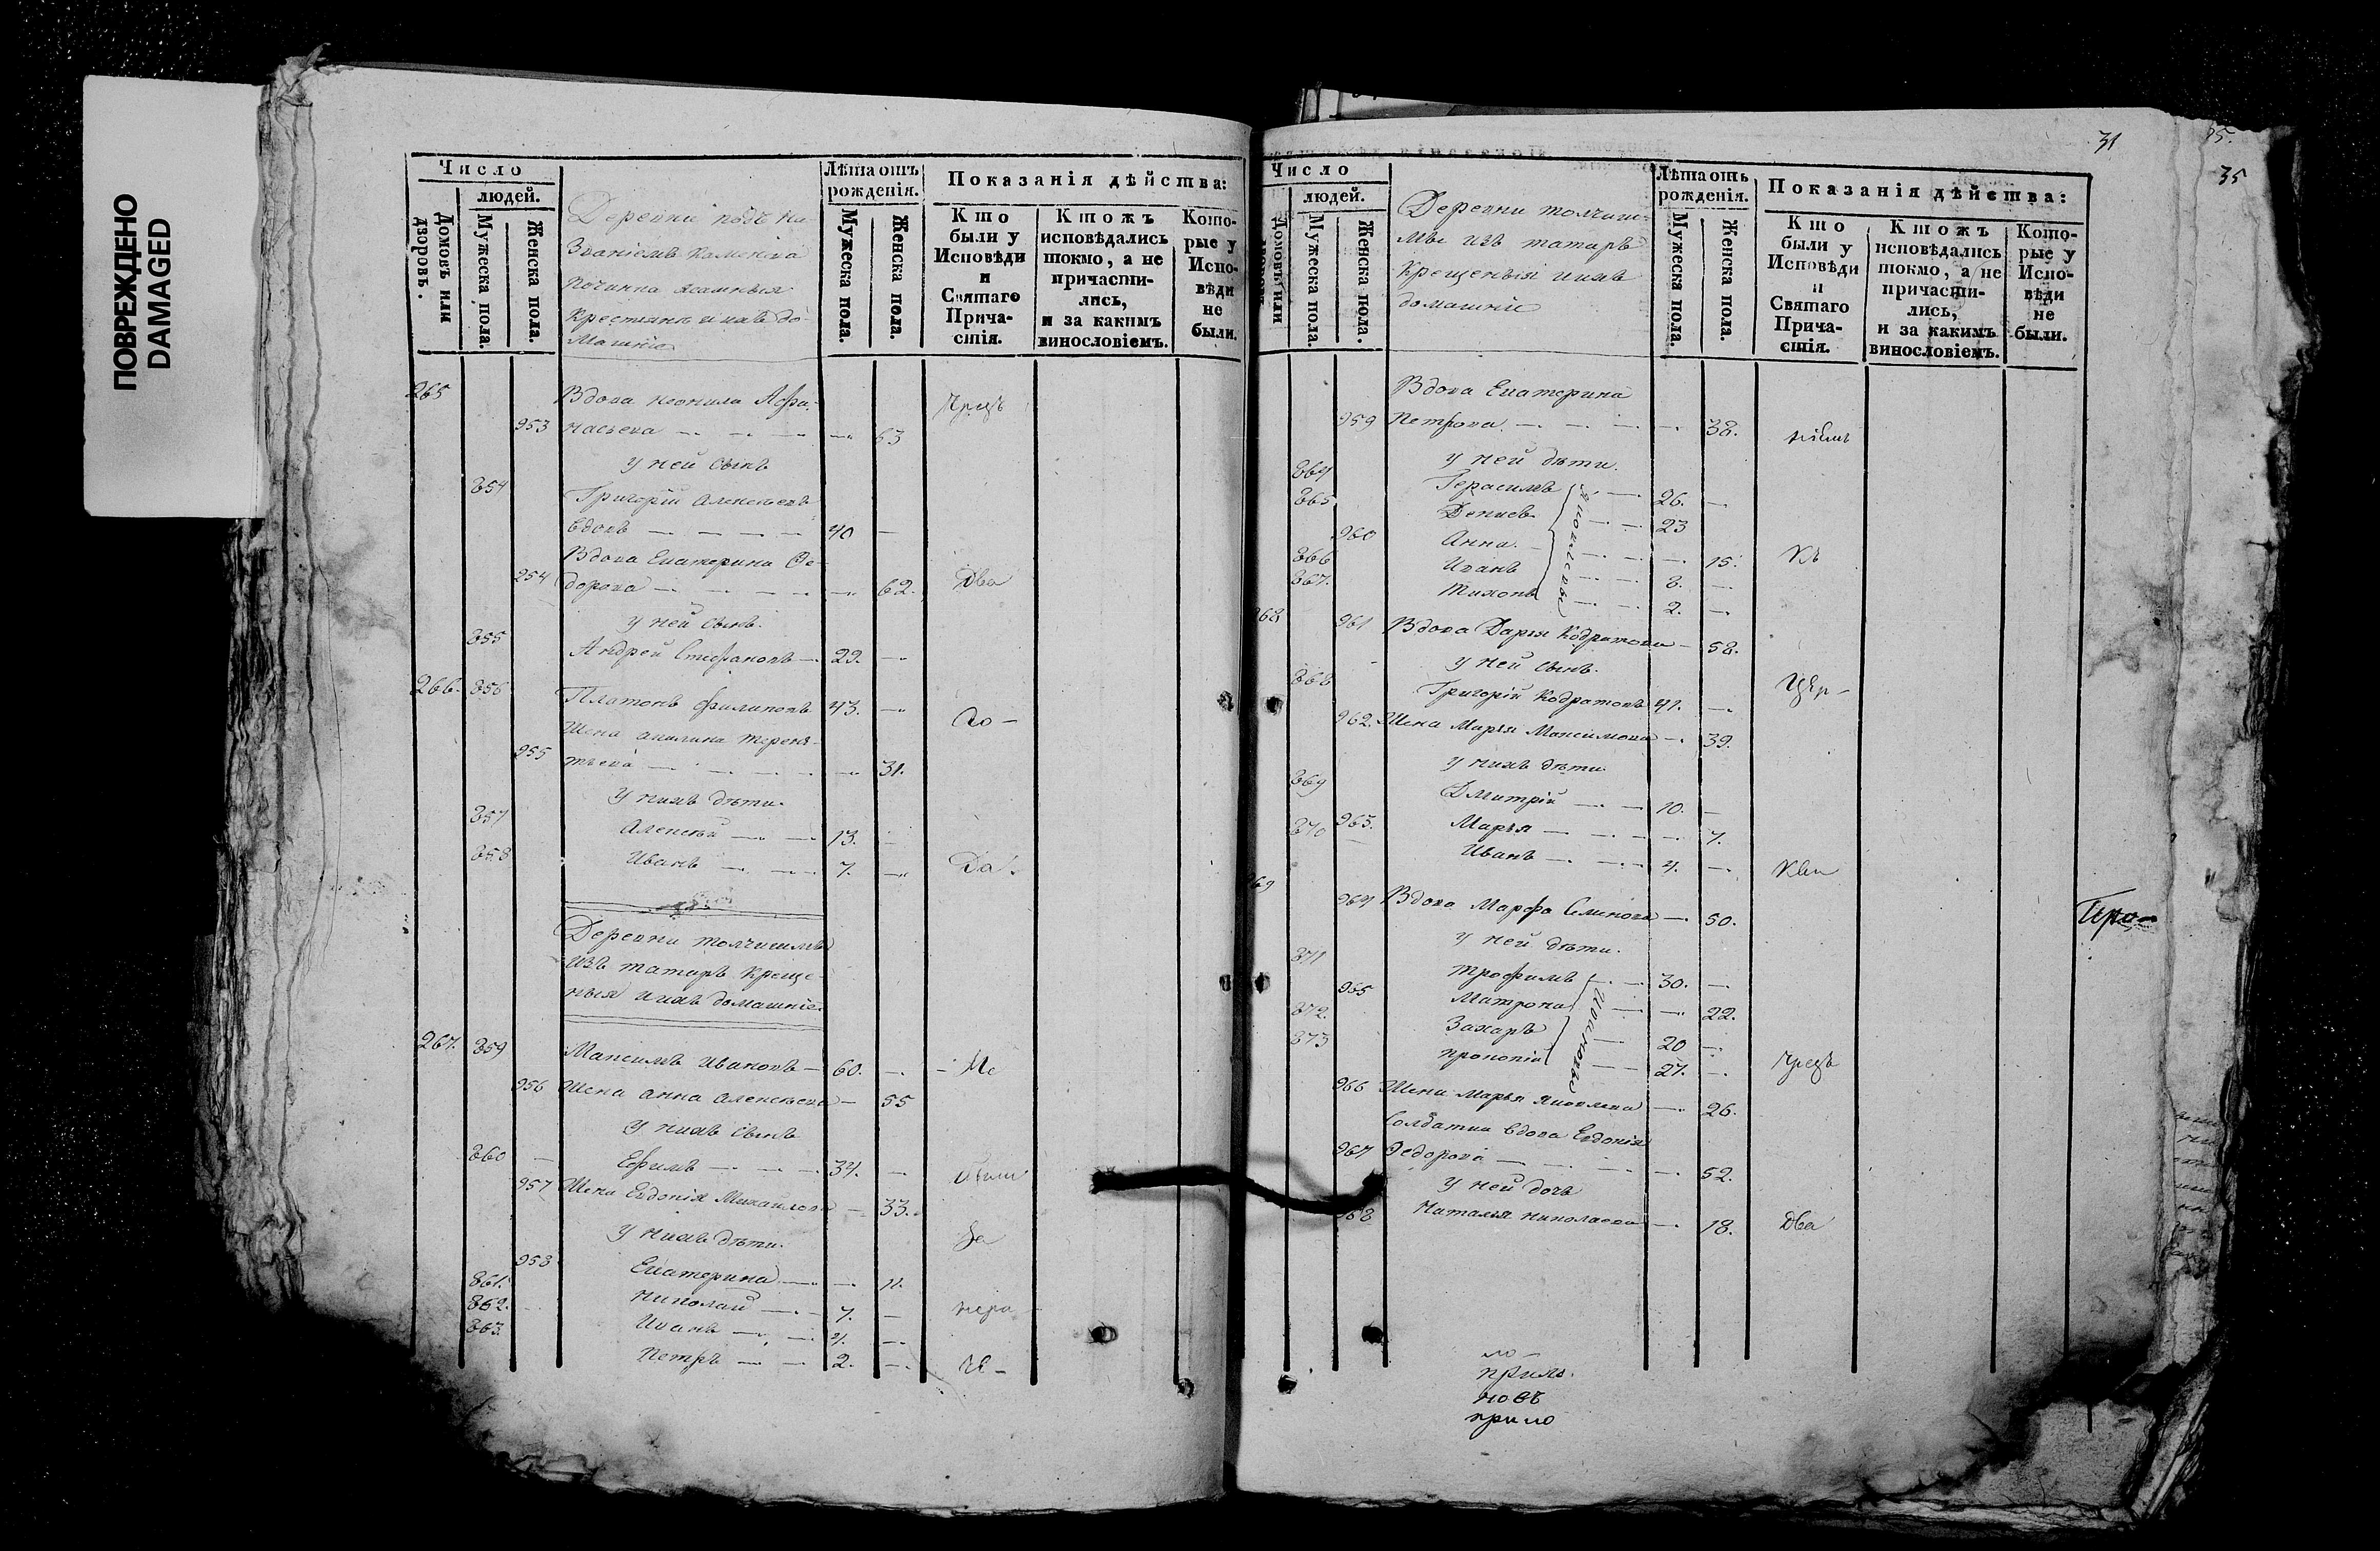 ПОВРЕЖДЕНО
DAMAGED
Число
людей.
Домовъ или дворовъ.
Мужеска пола.
Женска пола.
Деревни подъ на-
званіемъ Каменка
Починка ясашныя
крестьяне и ихъ до-
машніе
Лѣта отъ рожденія.
Мужеска пола.
Женска пола.
Показанія дѣйства:
Кто были у Исповѣди и Святаго Причастія.
Ктожъ исповѣдались токмо, а не причастились, и за какимъ винословіемъ.
Которые у Исповѣди не были.
265 Вдова Неонила Афа-
953 насьева 63
у ней сынъ
854 Григорій Алексѣевъ
вдовъ 40
Вдова Екатерина Ѳе-
954 дорова 62. Два
у ней сынъ.
855 Андрей Стефановъ 29.
266. 856 Платонъ Филиповъ 43.
Жена Акилина Терень-
955 тьева 31.
У нихъ дѣти.
857 Алексѣй 13.
858 Иванъ 7.
Деревни Толчишмы
изъ татаръ креще-
ныя и ихъ домашніе.
267. 859 Максимъ Ивановъ 60.
956 Жена Анна Алексѣева 55
У нихъ сынъ
860 Ефимъ 34.
957 Жена Евдокія Михайлова 33.
У нихъ дѣти.
958 Екатерина 11.
861. Николай 7.
862. Иванъ 4.
863. Петръ 2.
31
35
Число
людей.
Домовъ или
Мужеска пола.
Женска пола.
Деревни Толчиш-
мы изъ татаръ
крещеныя и ихъ
домашніе
Лѣта отъ рожденія.
Мужеска пола.
Женска пола.
Показанія дѣйства:
Кто были у Исповѣди и Святаго Причастія.
Ктожъ исповѣдались токмо, а не причастились, и за какимъ винословіемъ.
Которые у Исповѣди не были.
Вдова Екатерина
959 Петрова 38.
у ней дѣти.
864 Герасимъ 26.
865 Денисъ 23
960 Анна 15.
866 Иванъ 8.
867. Тихонъ 2.
268 961 Вдова Дарья Кодратова 58.
у ней сынъ.
868 Григорій Кодратовъ 41.
962. Жена Марья Максимова 39.
у нихъ дѣти
869 Дмитрій 10.
963. Марья 7.
870 Иванъ 4.
269 964 Вдова Марфа Семенова 50.
у ней дѣти.
871 Трофимъ 30.
965 Матрона 22.
872. Захаръ 20
873 Прокопій 27.
966 Жена Марья Яковлева 26.
Солдатка вдова Евдокія
967 Ѳедорова 52.
У ней дочь
968 Наталья Николаева 18. Два